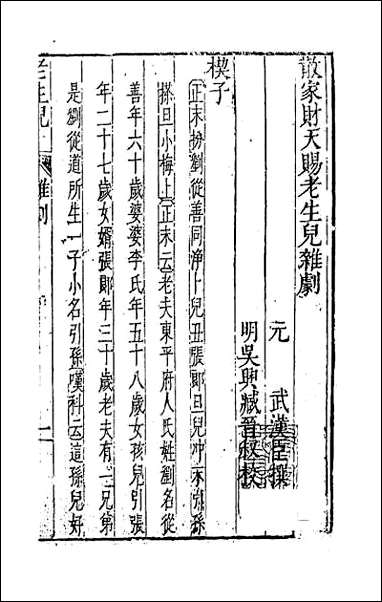 散家財天賜老生兒雜劇
元 武漢臣撰
明吳興臧晉叔校
楔子
正末扮劉從善同淨卜兒丑張郎旦兒冲末引孫
搽旦小梅上正末云老夫東平府人氏姓劉名從
善年六十歲婆婆李氏年五十八歲女孩兒引張
年二十七歲女婿張郎年三十歲老夫有一兄弟
是劉從道所生一子小名引孫嘆科云這孫兒好
老生兒 雜劇 一